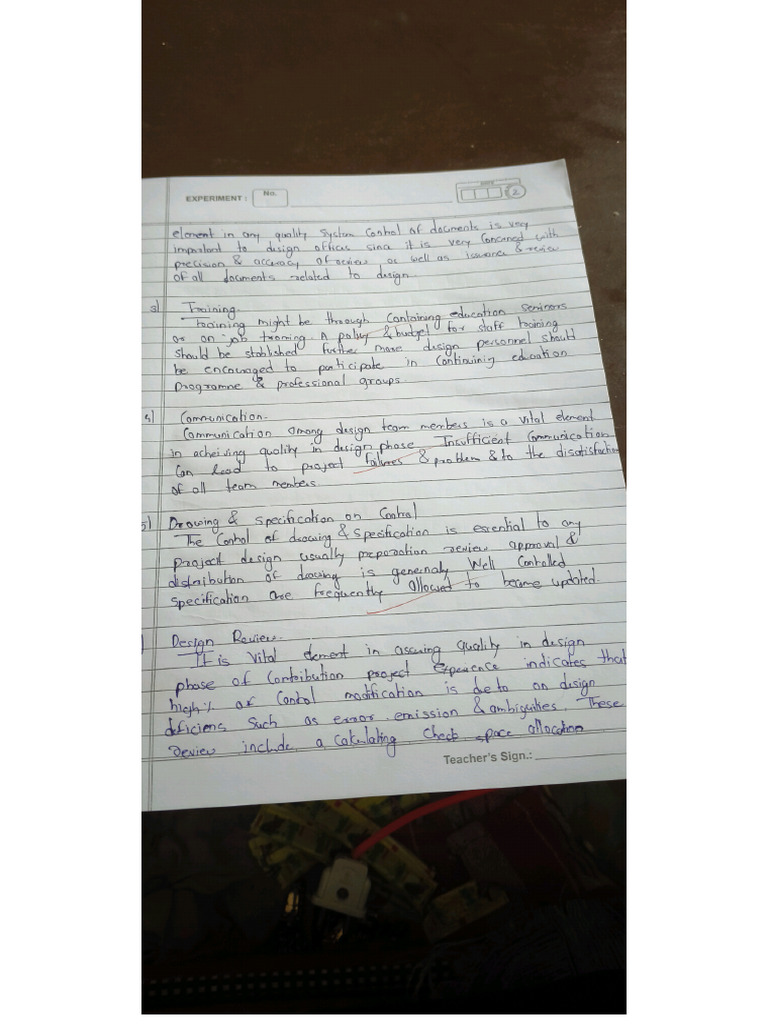 EXPERIMENT : No.
DATE 2
element in any quality System Control of documents is very
important to design offices since it is very Concerned with
precision & accuracy of review as well as issuance & review
of all documents related to design.
3) Training.
Training might be through Containing education Seminors
or on job traning. A policy & budget for staff training
should be stablished further more design personnel should
be encouraged to participate in Continuinig education
Programme & professional groups.
4) Communication.
Communication among design team members is a vital element
in acheiving quality in design phase. Insufficient Communication
Can lead to project failures & problem & to the disatisfaction
of all team members.
5) Drawing & Specification on Control
The Control of drawing & specification is essential to any
project design usually preparation review approval &
distribution of drawing is generally Well Controlled
specification are frequently allowed to become updated.
) Design Review.
It is Vital element in assuring Quality in design
phase of Contribution project Experience indicates that
high % of Control modification is de to on design
deficiens Such as error, emission & ambiguities. These
review include a Calculating Check space allocation
Teacher's Sign.: